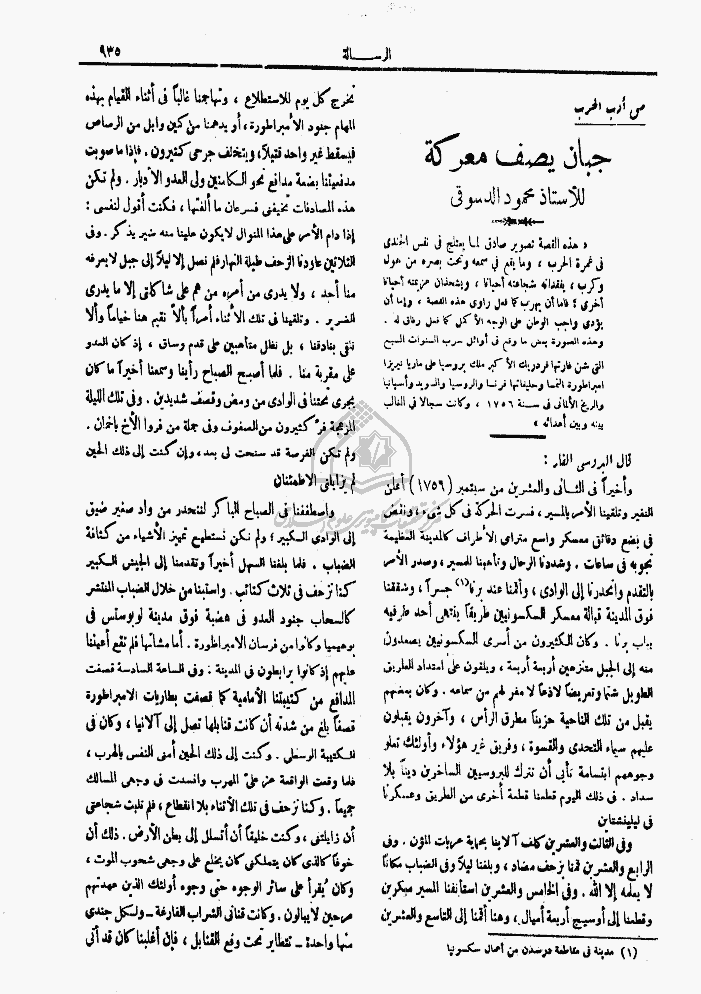 الرسالة
٩٣٥
من أدب الحرب
جبان يصف معركة
للأستاذ محمود الدسوقي
« هذه القصة تصوير صادق لما يعتلج في نفس الجندي
في غمرة الحرب ، وما يقع في سمعه وتحت بصره من هول
وكرب ، يفقدانه شجاعته أحيانا ، ويشحذان عزيمته أحيانا
أخرى ؛ فاما أن يهرب كما فعل راوي هذه القصة ، وإما أن
يؤدى واجب الوطن على الوجه الأكمل كما فعل رفاق له .
وهذه الصورة بعض ما وقع في أوائل حرب السنوات السبع
التي شن غارتها فردريك الأكبر ملك بروسيا على ماريا تيريزا
امبراطورة النمسا وحليفاتها فرنسا والروسيا والسويد وأسبانيا
والريخ الألماني في سنة ١٧٥٦ ، وكانت سجالا في الغالب
بينه وبين أعدائه »
قال البروسي الفار :
وأخيراً في الثاني والعشرين من سبتمبر (١٧٥٦) أعلن
النفير وتلقينا الأمر بالمسير ، فسرت الحركة في كل شيء ، وانفض
في بضع دقائق معسكر واسع مترامي الأطراف كالمدينة العظيمة
تجوبه في ساعات . وشددنا الرحال وتأهبنا للمسير ، وصدر الأمر
بالتقدم وانحدرنا إلى الوادى ، وأقمنا عند برنا(١) جسراً ، وشققنا
فوق المدينة قبالة معسكر السكسونيين طريقاً ينتهى أحد طرفيه
بباب برنا . وكان الكثيرون من أسرى السكسونيين يصعدون
منه إلى الجبل منتزحين أربعة أربعة ، ويلقون على امتداد الطريق
الطويل شتما وتعريضاً لاذعاً لا مفر لهم من سماعه . وكان بعضهم
يقبل من تلك الناحية حزيناً مطرق الرأس ، وآخرون يقبلون
عليهم سيماء التحدى والقسوة ، وفريق غير هؤلاء وأولئك تعلو
وجوههم ابتسامة تأبى أن تترك للبروسيين الساخرين ديناً بلا
سداد . في ذلك اليوم قطعنا قطعة أخرى من الطريق وعسكرنا
في ليلينشتاين
وفي الثالث والعشرين كلف آلاينا بحماية عربات المؤن . وفي
الرابع والعشرين قمنا بزحف مضاد ، وبلغنا ليلاً وفي الضباب مكاناً
لا يعلمه إلا الله . وفي الخامس والعشرين استأنفنا المسير مبكرين
وقطعنا إلى أوسيج أربعة أميال ، وهنا أقمنا إلى التاسع والعشرين
(١) مدينة في مقاطعة درسدن من أعمال سكسونيا
نخرج كل يوم للاستطلاع ، وتهاجمنا غالباً في أثناء القيام بهذه
المهام جنود الأمبراطورة ، أو يدهمنا من كمين وابل من الرصاص
فيسقط غير واحد قتيلاً ، ويتخلف جرحى كثيرون . فاذا ما صوبت
مدفعيتنا بضعة مدافع نحو الكامنين ولى العدو الأدبار . ولم تكن
هذه المصادفات تخيفني فسرعان ما ألفتها ، فكنت أقول لنفسى :
إذا دام الأمر على هذا المنوال لا يكون علينا منه ضير يذكر . وفى
الثلاثين عاودنا الزحف طيلة النهار فلم نصل إلا ليلاً إلى جبل لا يعرفه
منا أحد ، ولا يدرى من أمره من هم على شاكلتى إلا ما يدرى
الضرير . وتلقينا في تلك الأثناء أمراً بألا نقيم هنا خياماً وألا
نلقى بنادقنا ، بل نظل متأهبين على قدم وساق ، إذ كان العدو
على مقربة منا . فلما أصبح الصباح رأينا وسمعنا أخيراً ما كان
يجرى تحتنا في الوادى من ومض وقصف شديدين . وفى تلك الليلة
المزعجة فر كثيرون من الصفوف وفى جملة من فروا الأخ باخمان .
ولم تكن الفرصة قد سنحت لى بعد ، وإن كنت إلى ذلك الحين
لم يزايلنى الاطمئنان
واصطففنا في الصباح الباكر لننحدر من واد صغير ضيق
إلى الوادى الكبير ؛ ولم نكن نستطيع تمييز الأشياء من كثافة
الضباب . فلما بلغنا السهل أخيراً وتقدمنا إلى الجيش الكبير
كنا نزحف في ثلاث كتائب . واستبنا من خلال الضباب المنتشر
كالسحاب جنود العدو في هضبة فوق مدينة لوبوستس في
بوهيميا وكانوا من فرسان الامبراطورة . أما مشاتها فلم تقع أعيننا
عليهم إذ كانوا يرابطون في المدينة . وفى الساعة السادسة قصفت
المدافع من كتيبتنا الأمامية كما قصفت بطاريات الامبراطورة
قصفاً بلغ من شدته أن كانت قنابلها تصل إلى آلاينا ، وكان في
الكتيبة الوسطى . وكنت إلى ذلك الحين أمنى النفس بالهرب ،
فلما وقعت الواقعة عز علىّ المهرب وانسدت فى وجهى المسالك
جميعاً . وكنا نزحف في تلك الأثناء بلا انقطاع ، فلم تلبث شجاعتى
أن زايلتنى ، وكنت خليقاً أن أتسلل إلى بطن الأرض . ذلك أن
خوفا كالذى كان يتملكنى كان يخلع على وجهى شحوب الموت ،
وكان يُقرأ على سائر الوجوه حتى وجوه أولئك الذين عهدتهم
مرحين لا يبالون . وكانت قنانى الشراب الفارغة ــ ولكل جندى
منها واحدة ــ تتطاير تحت وقع القنابل ، فان أغلبنا كان قد أتى